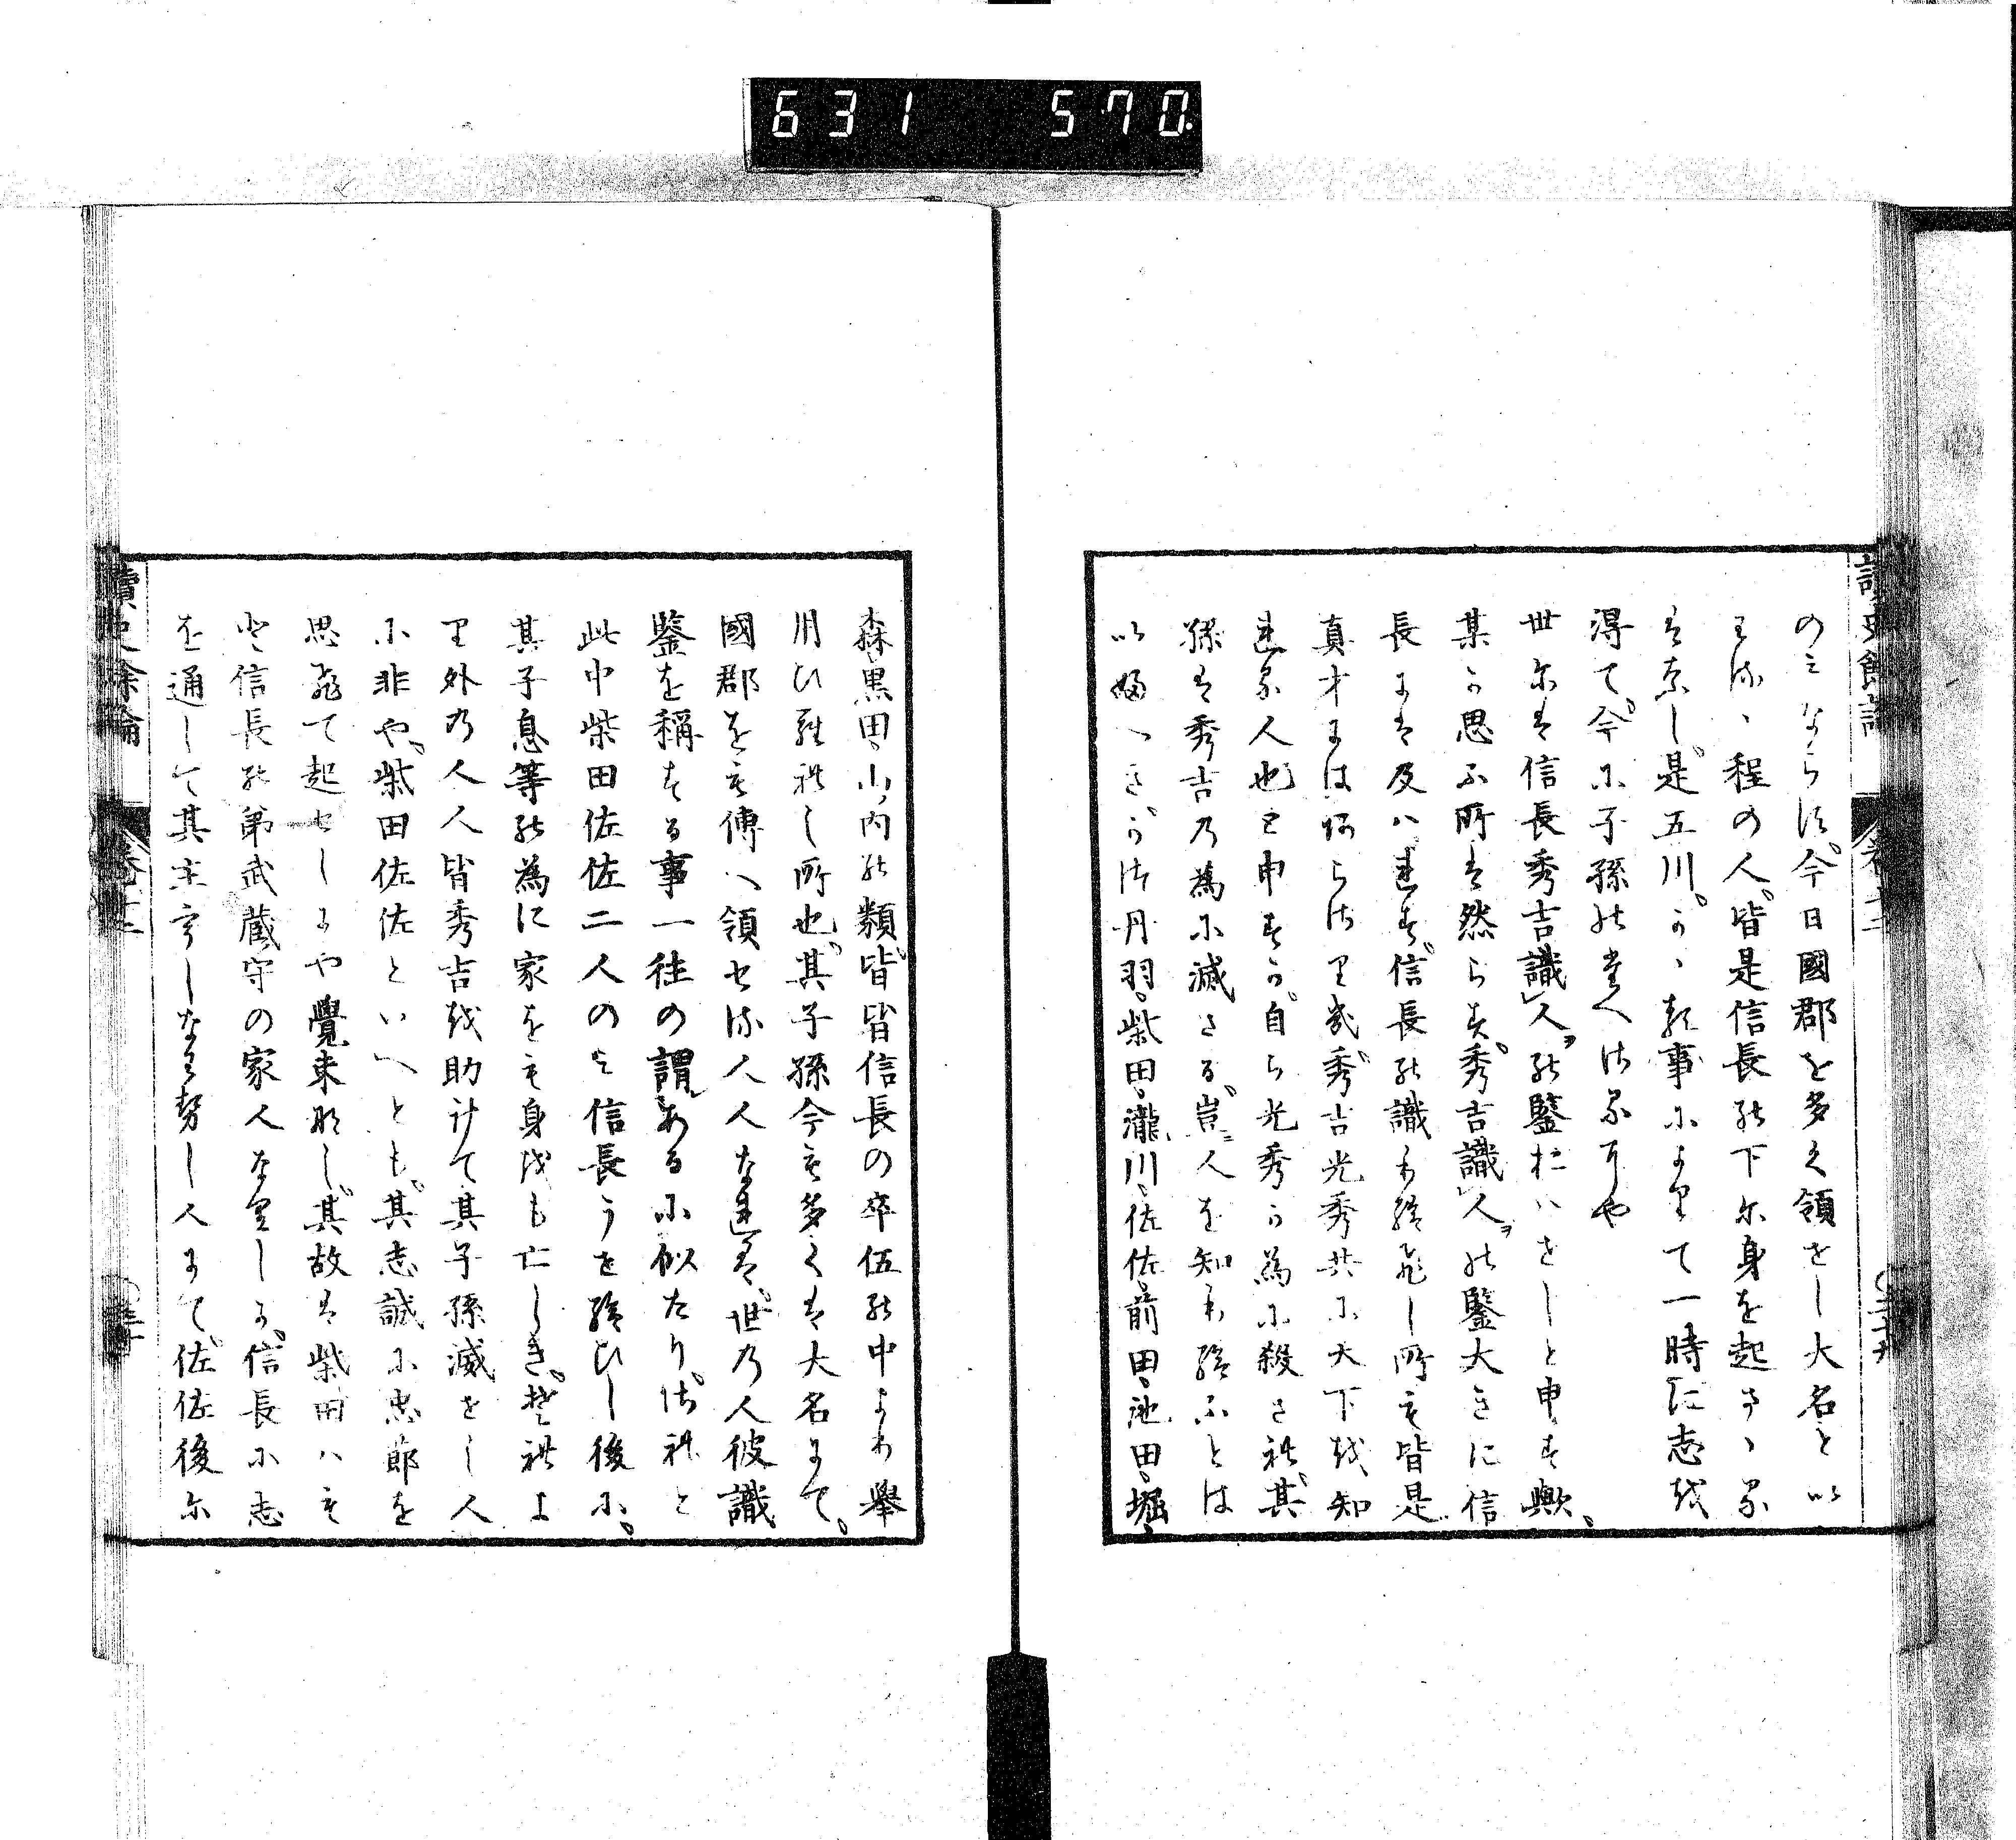 631 570.
讀史餘論
のみならす。今日國郡を多く領せし大名とい
はるゝ程の人。皆是信長の下に身を起さゝる
はなし。是五つ。かゝる事によりて一時に志を
得て。今に子孫の榮へけるにや
世には信長秀吉識人の鑒おはせしと申す歟。
某か思ふ所は然らす。秀吉識人の鑒大きに信
長には及はれす。信長の識り給ひし所も皆是
真才にはあらけり哉。秀吉光秀共に天下を知
れる人也と申すか。自ら光秀か為に殺され。其
孫は秀吉の為に滅さる。豈人を知り給ふとは
いふへき。かつ丹羽、柴田、瀧川、佐佐、前田、池田、堀、
森、黒田、山内の類。皆皆信長の卒伍の中より擧
用ひられし所也。其子孫今も多くは大名にて。
國郡をも傳へ領せる人人なれは、世の人彼識
鑒を稱する事一往の謂あるに似たり。けれと
此中柴田佐佐二人のみ信長うせ給ひし後に。
其子息等の為に家をも身をも亡しき。それよ
り外の人人皆秀吉を助けて其子孫滅せし人
に非や。柴田佐佐といへとも。其志誠に忠節を
思ひて起せしにや覺束なし。其故は柴田はも
と信長の弟武蔵守の家人なりしか。信長に志
を通して其主亨しなひ勢し人にて。佐佐後に
讀史餘論